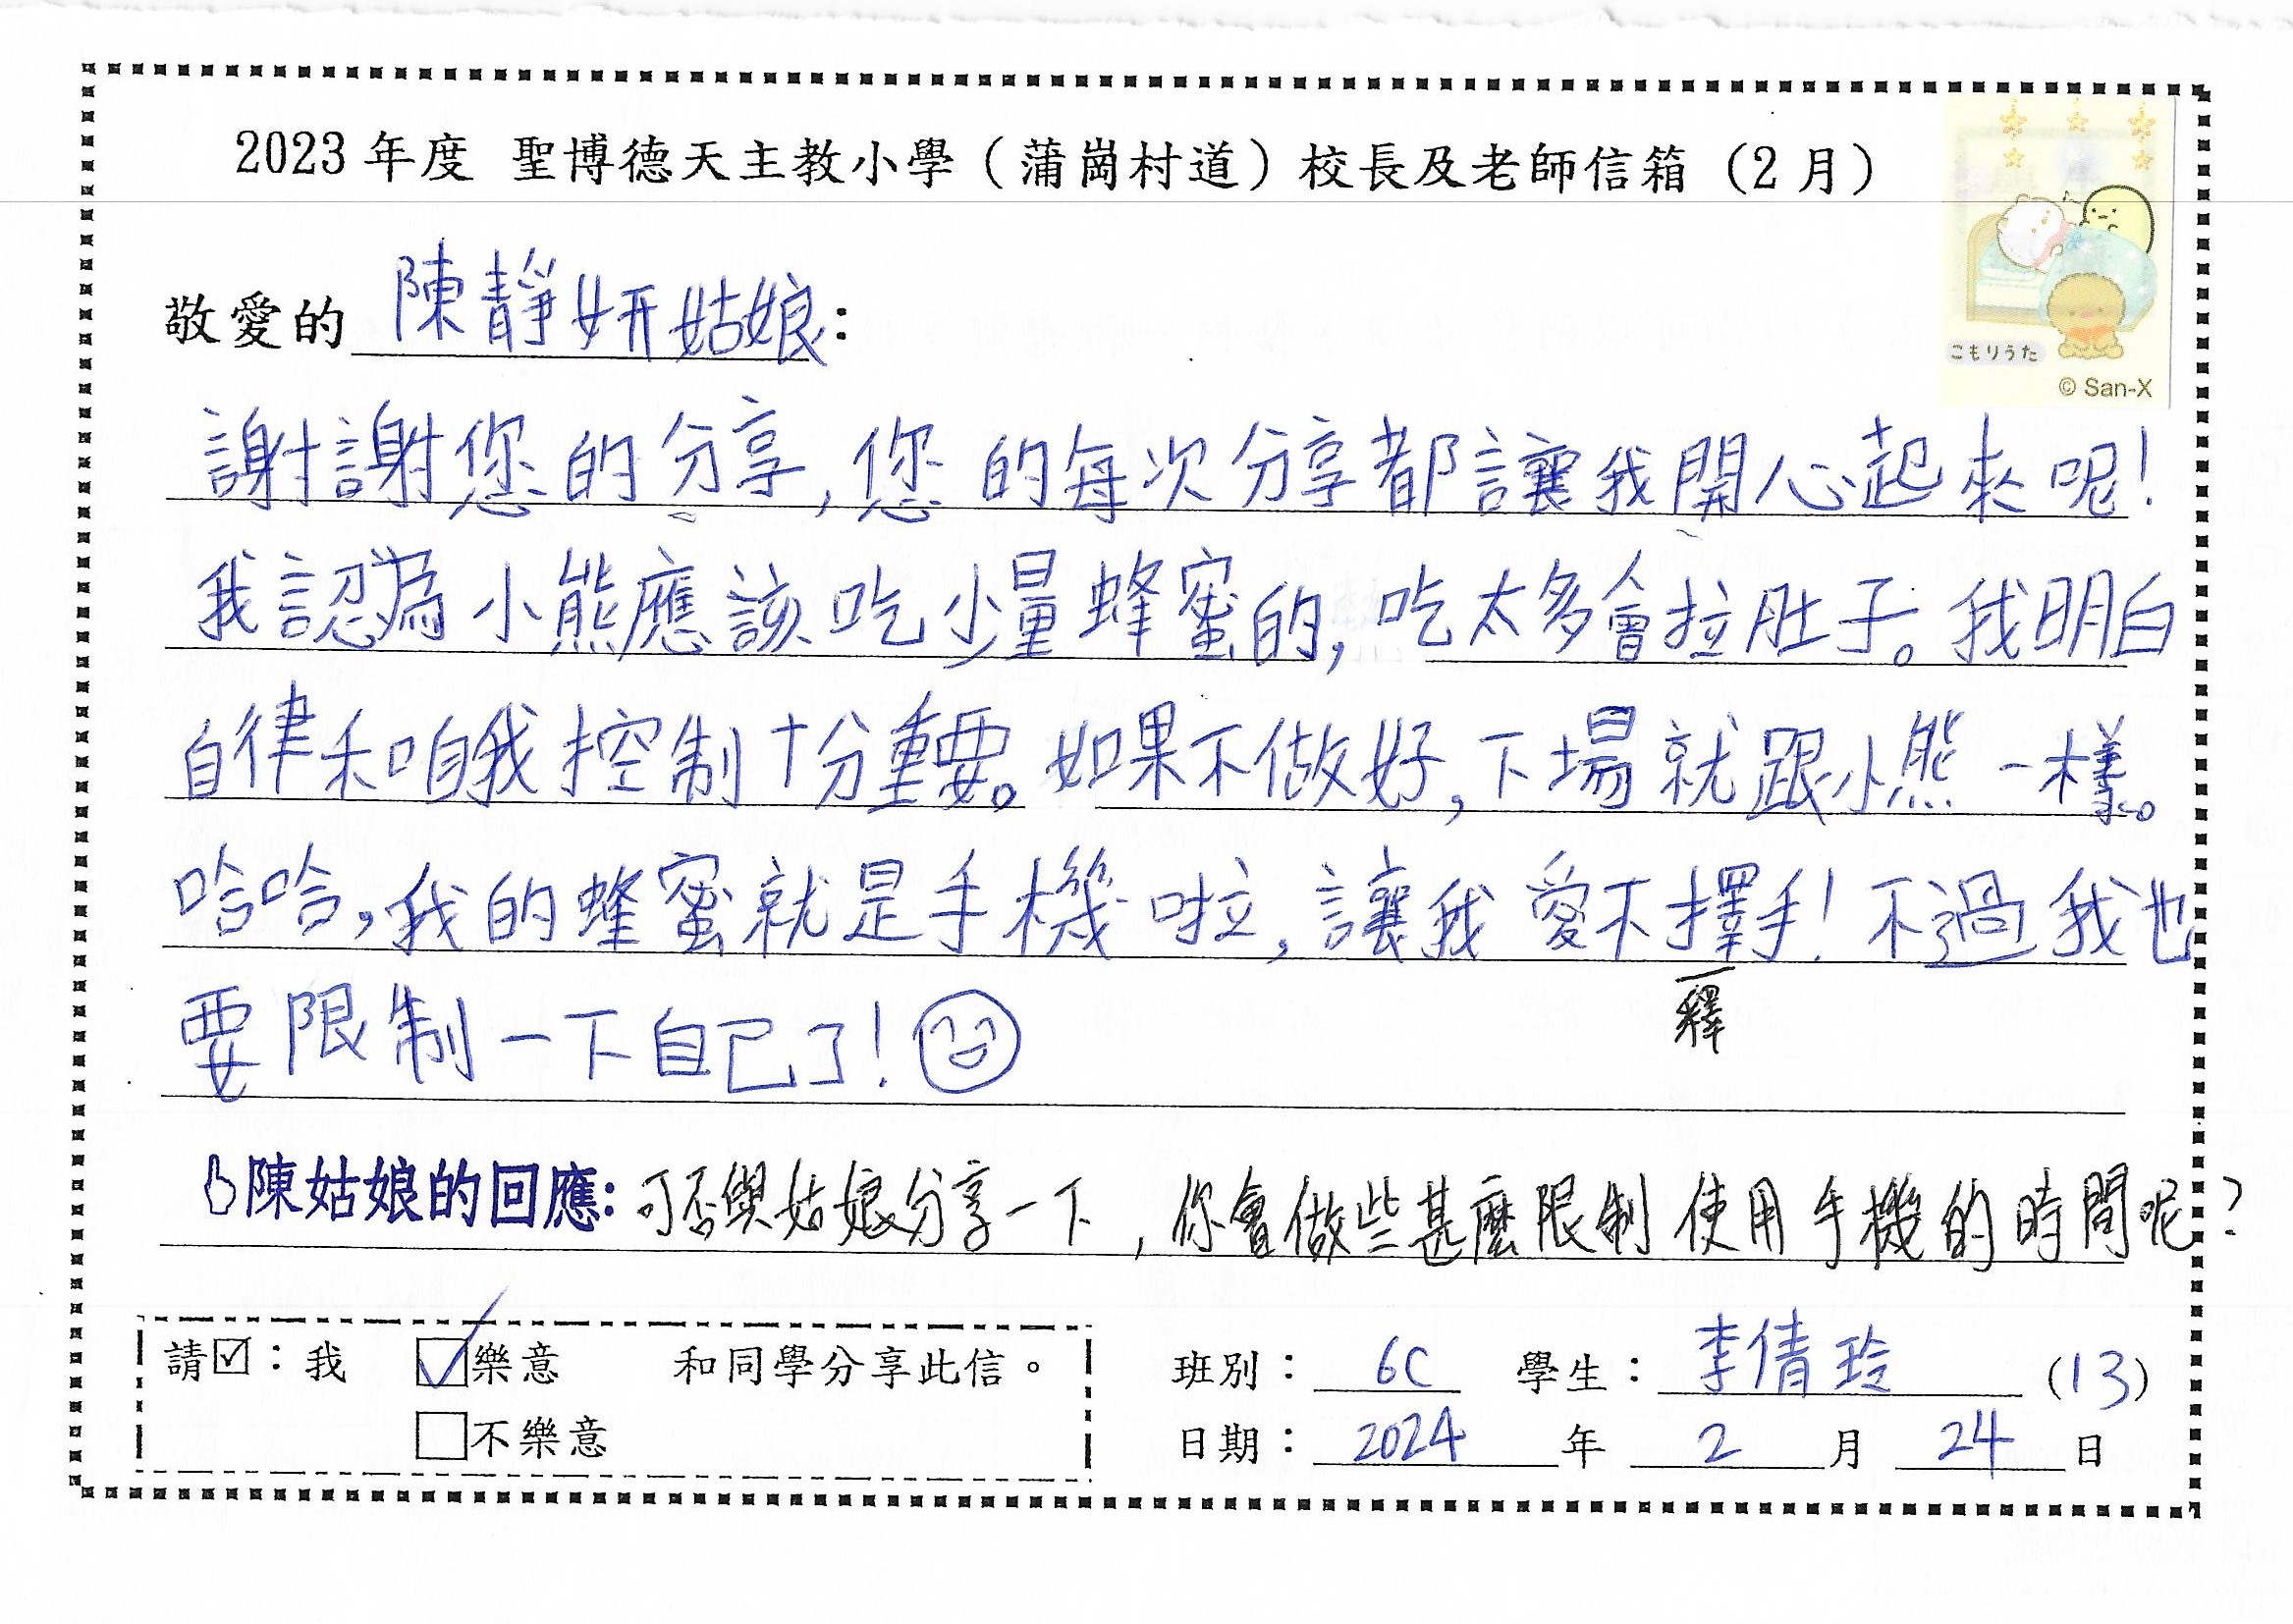 2023 年度 聖博德天主教小學（蒲崗村道）校長及老師信箱（2 月）
敬愛的 陳靜妍姑娘：
こもりうた
© San-X
謝謝您的分享,您的每次分享都讓我開心起來呢！
我認為小熊應該吃少量蜂蜜的,吃太多會拉肚子。我明白
自律和自我控制十分重要。如果不做好,下場就跟小熊一樣。
哈哈,我的蜂蜜就是手機啦,讓我愛不擇手！不過我也
釋
要限制一下自己了！
陳姑娘的回應：可否與姑娘分享一下，你會做些甚麼限制使用手機的時間呢？
請☑：我 ☑樂意 和同學分享此信。
□不樂意
班別： 6C 學生：李倩玲 (13)
日期： 2024 年 2 月 24 日